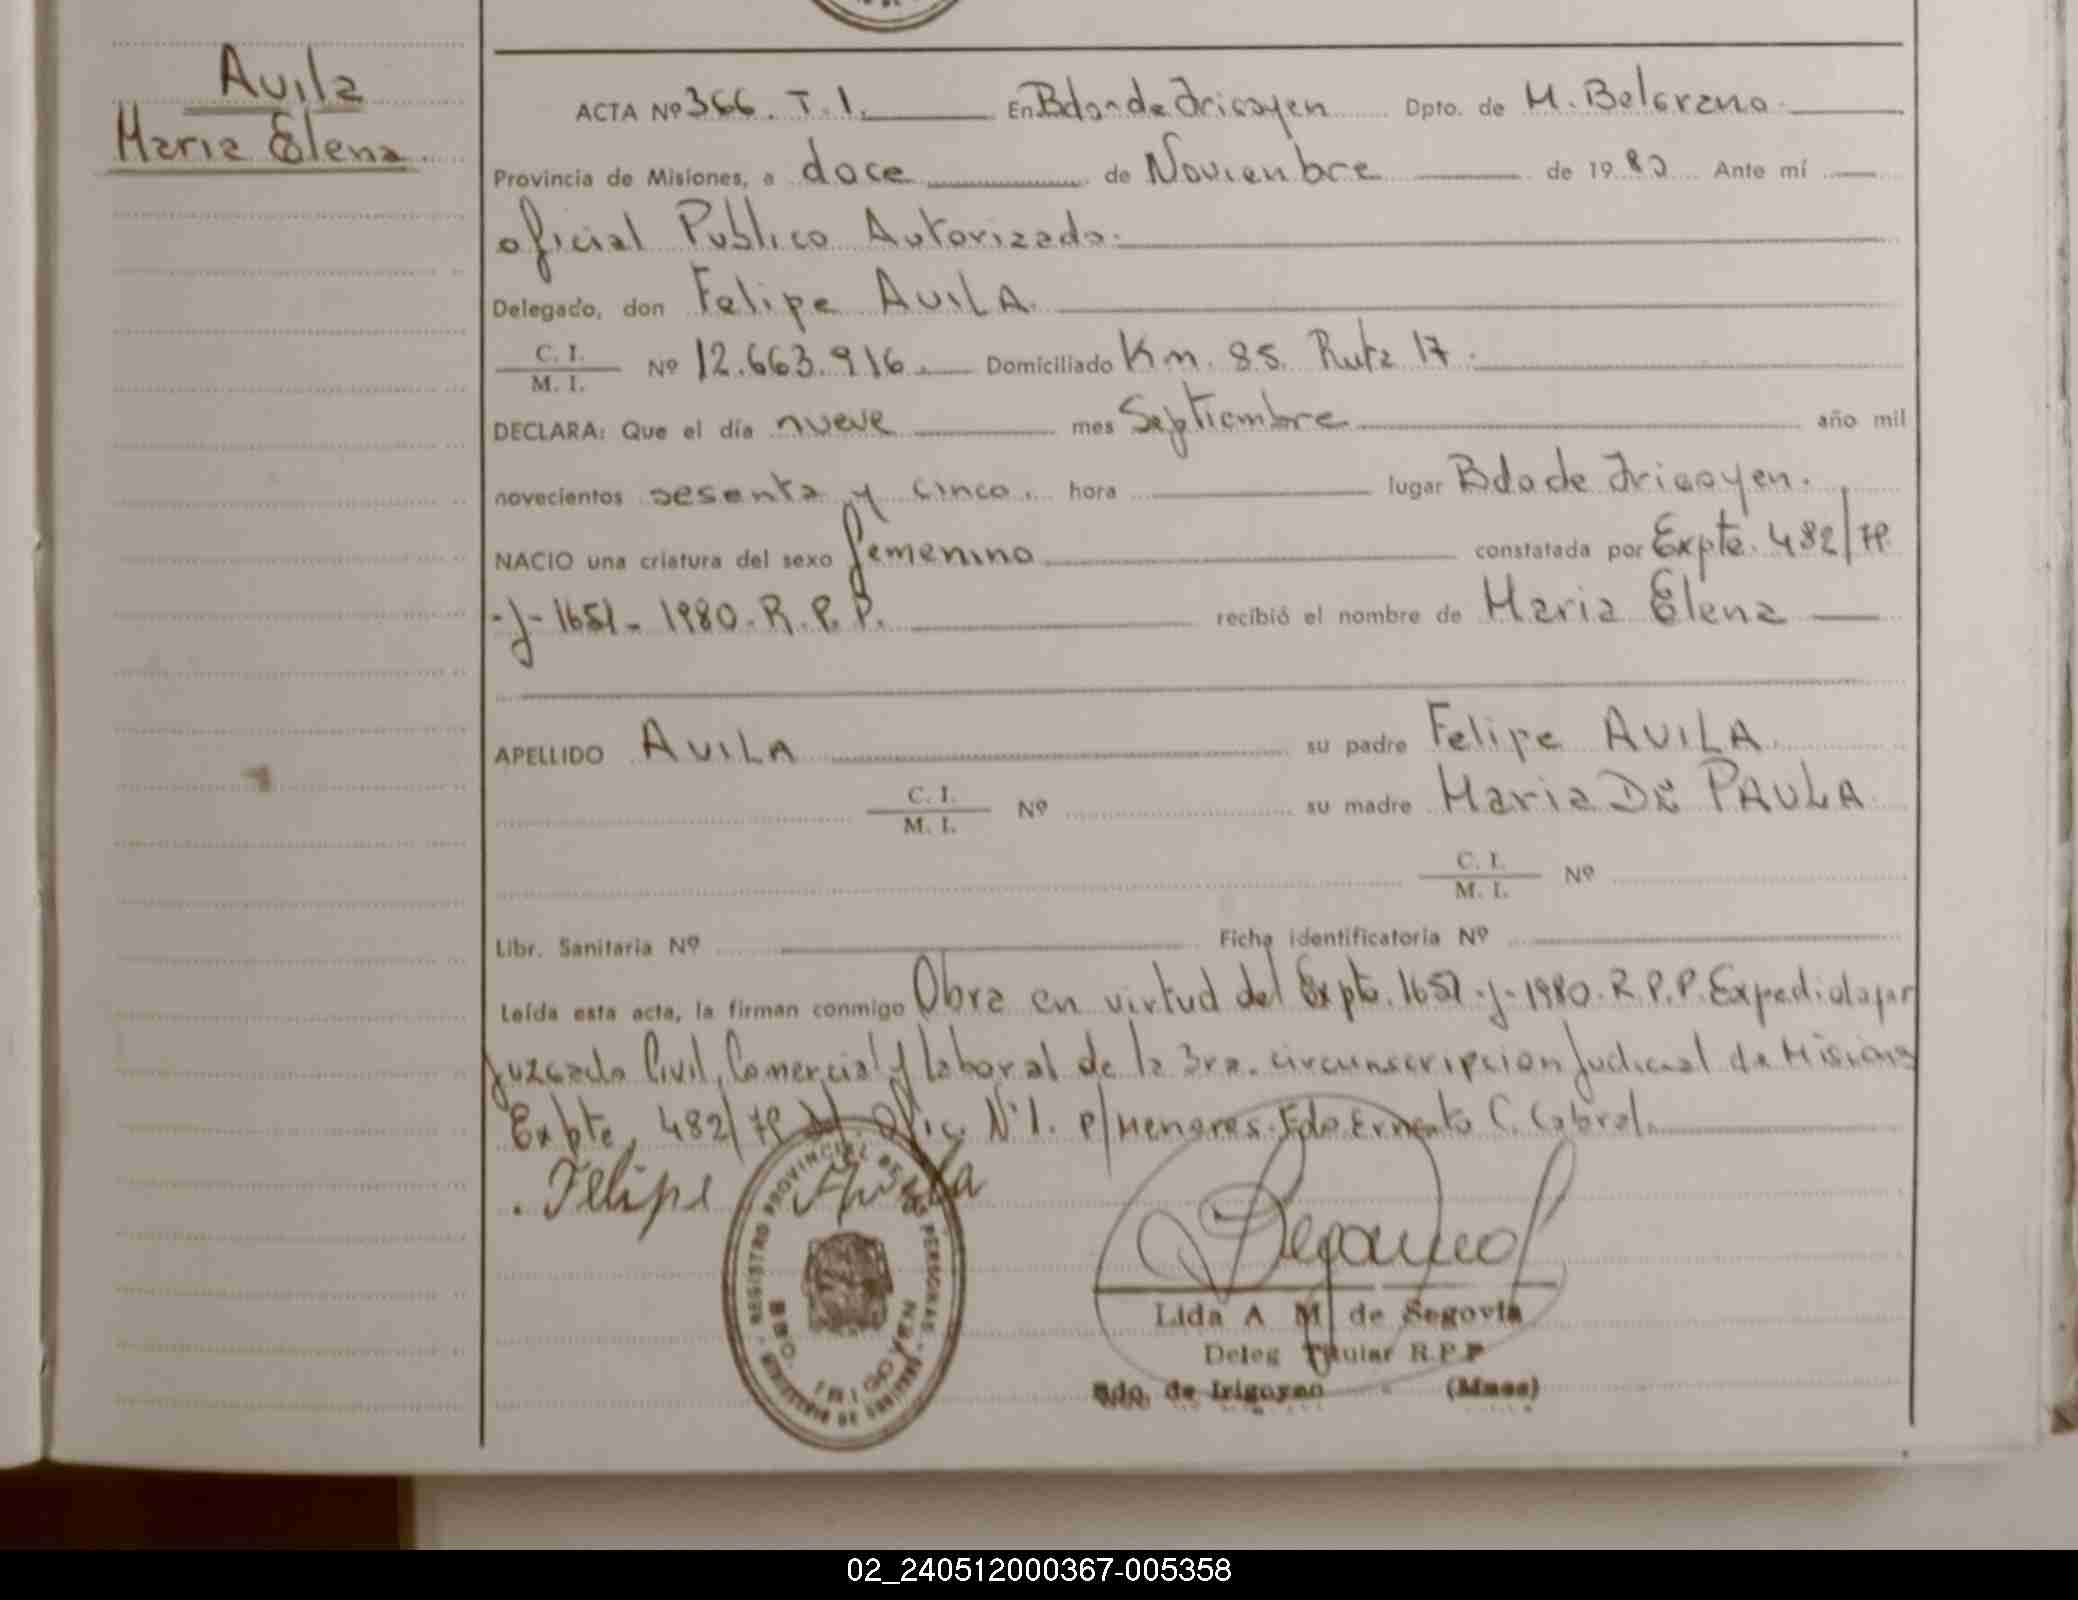 Avila
Maria Elena
ACTA Nº 366. T. 1. En Bdo. de Irigoyen Dpto. de M. Belgrano
Provincia de Misiones, a doce de Novienbre de 1980 Ante mí
oficial Publico Autorizado.
Delegado, don Felipe AVILA.
C. I.
M. I. Nº 12.663.916. Domiciliado Km. 85. Ruta 17.
DECLARA: Que el día nueve mes Septiembre año mil
novecientos sesenta y cinco. hora lugar Bdo de Irigoyen.
NACIO una criatura del sexo femenino constatada por Expte. 482/79
-J- 1651- 1980. R. P. P. recibió el nombre de Maria Elena
APELLIDO AVILA su padre Felipe AVILA
C. I.
M. I. Nº su madre Maria DE PAULA
C. I.
M. I. Nº
Libr. Sanitaria Nº Ficha identificatoria Nº
Leída esta acta, la firman conmigo Obra en virtud del Expte. 1651-J-1980. R. P. P. Expedida por
Juzgado Civil, Comercial y laboral de la 3ra. circunscripcion Judicial de Misiones
Expte, 482/79 Ofic. Nº1. p/Menores. Fdo. Ernesto C. Cabral.
Felipe Avila
REGISTRO PROVINCIAL DE LAS PERSONAS
MINISTERIO DE GOBIERNO
BDO. IRIGOYEN
Lida A M de Segovia
Deleg Titular R.P.P
Bdo. de Irigoyen (Mnes)
02_240512000367-005358